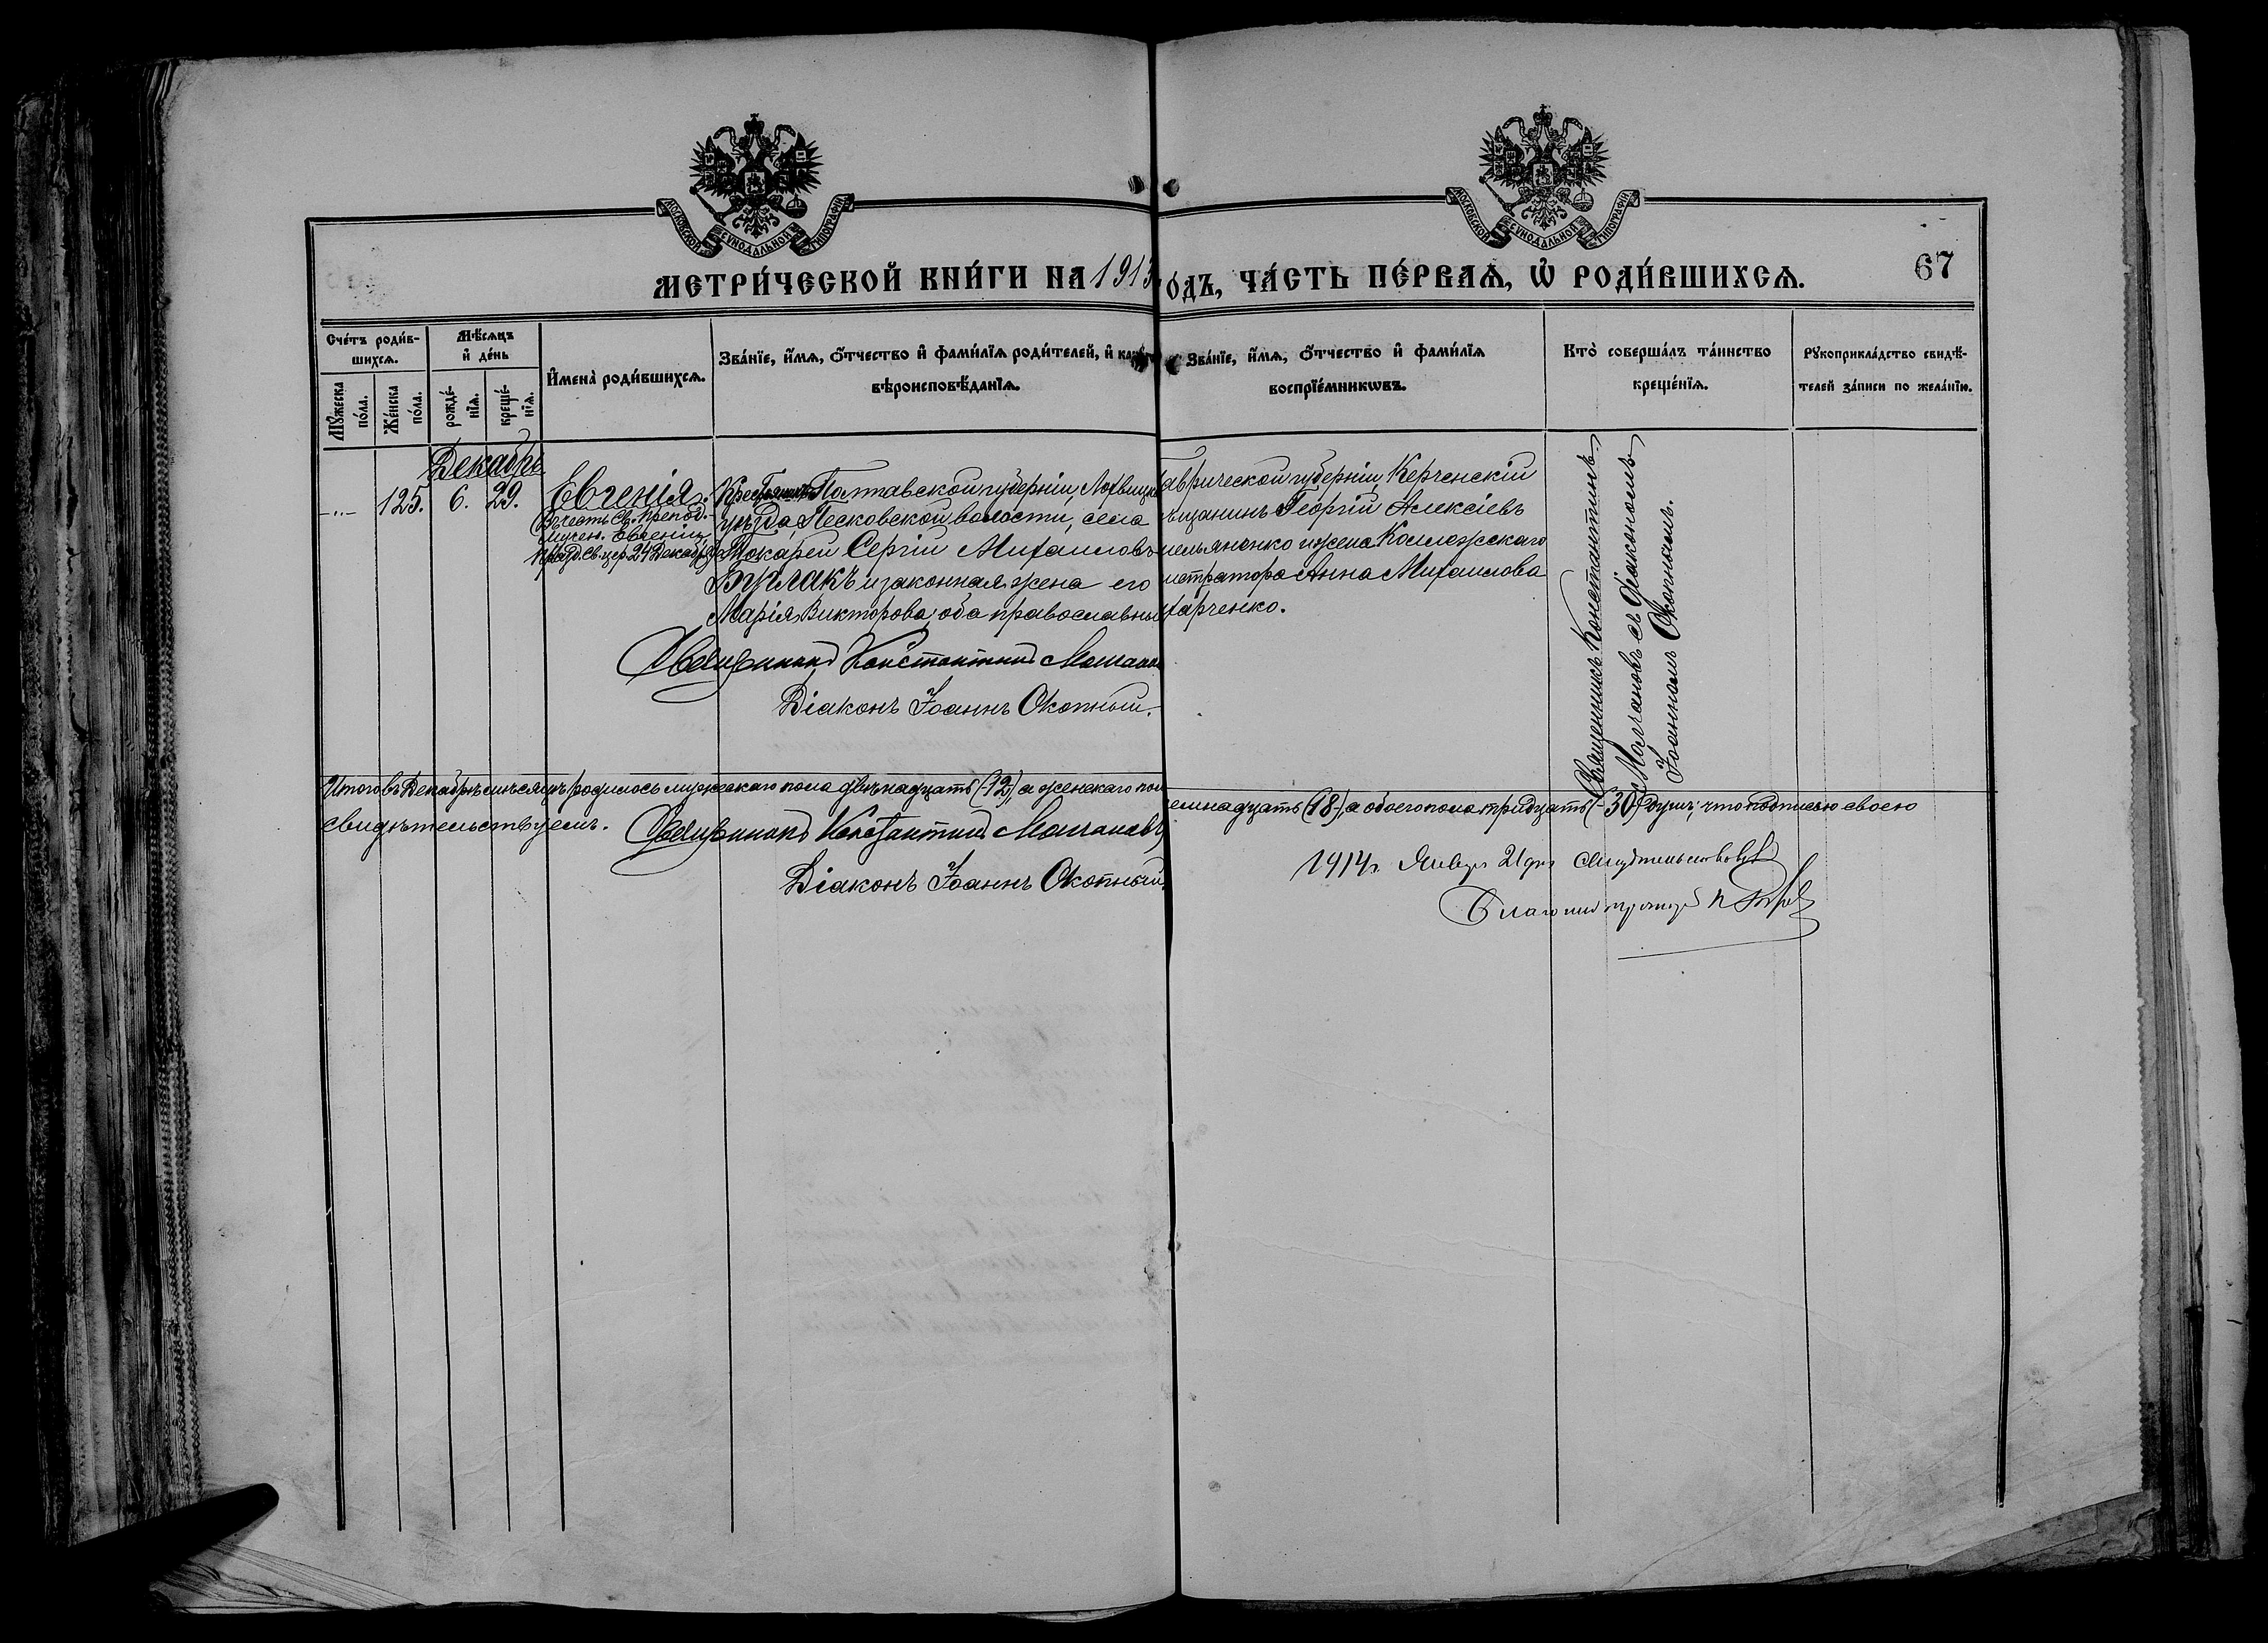 МОСКОВСКОЙ СУНОДАЛЬНОЙ ТИПОГРАФІИ
МОСКОВСКОЙ СУНОДАЛЬНОЙ ТИПОГРАФІИ
МЕТРИ́ЧЕСКОЙ КНИ́ГИ НА 1913
о́дъ, ЧА́СТЬ ПЕ́РВАѦ, Ѡ҆ РОДИ́ВШИХСѦ.
67
Сче́тъ роди́в-
шихсѧ.
Мꙋ́жеска
по́ла.
Же́нска
по́ла.
Мѣ́сѧцъ
и҆ де́нь
рожде́-
нїѧ.
креще́-
нїѧ.
И҆мена̀ роди́вшихсѧ.
Зва́нїе, и҆́мѧ, ѻ҆́тчество и҆ фами́лїѧ роди́телей, и҆
вѣроисповѣ́данїѧ.
Зва́нїе, и҆́мѧ, ѻ҆́тчество и҆ фами́лїѧ
воспрїе́мникѡвъ.
Кто̀ соверша́лъ та́инство
креще́нїѧ.
Рꙋкоприкла́дство свидѣ́-
телей за́писи по жела́нїю.
Декабрь
125. 6. 29.
Евгенія.
Въ честь Св. Препод.
мучен. Евгеніи,
24 Декабря
Полтавской губерніи, Лохвицка
уѣзда, Песковской волости, села
Токарей Сергій Михаиловъ
Бурлакъ и законная жена его
Марія Викторова, оба православны
авrической губерніи, Керченскій
ѣщанинъ Георгій Алексіевъ
мельяненко и жена Коллежскаго
истратора Анна Михаилова
харченко.
Священникъ Константинъ
Молчановъ съ Діакономъ
Іоанномъ Окопнымъ.
Священникъ Константинъ Молчанов
Діаконъ Іоаннъ Окопный.
Итого въ Декабрѣ мѣсяцѣ родилось мужескаго пола двѣнадцать (-12-), а женскаго пол
емнадцать (-18-), а обоего пола тридцать (-30-) душъ; что подписью своею
свидѣтельствуемъ.
Священникъ Константинъ Молчановъ
Діаконъ Іоаннъ Окопный.
1914 г. Января 21 дня свидѣтельствовалъ
Благочинный